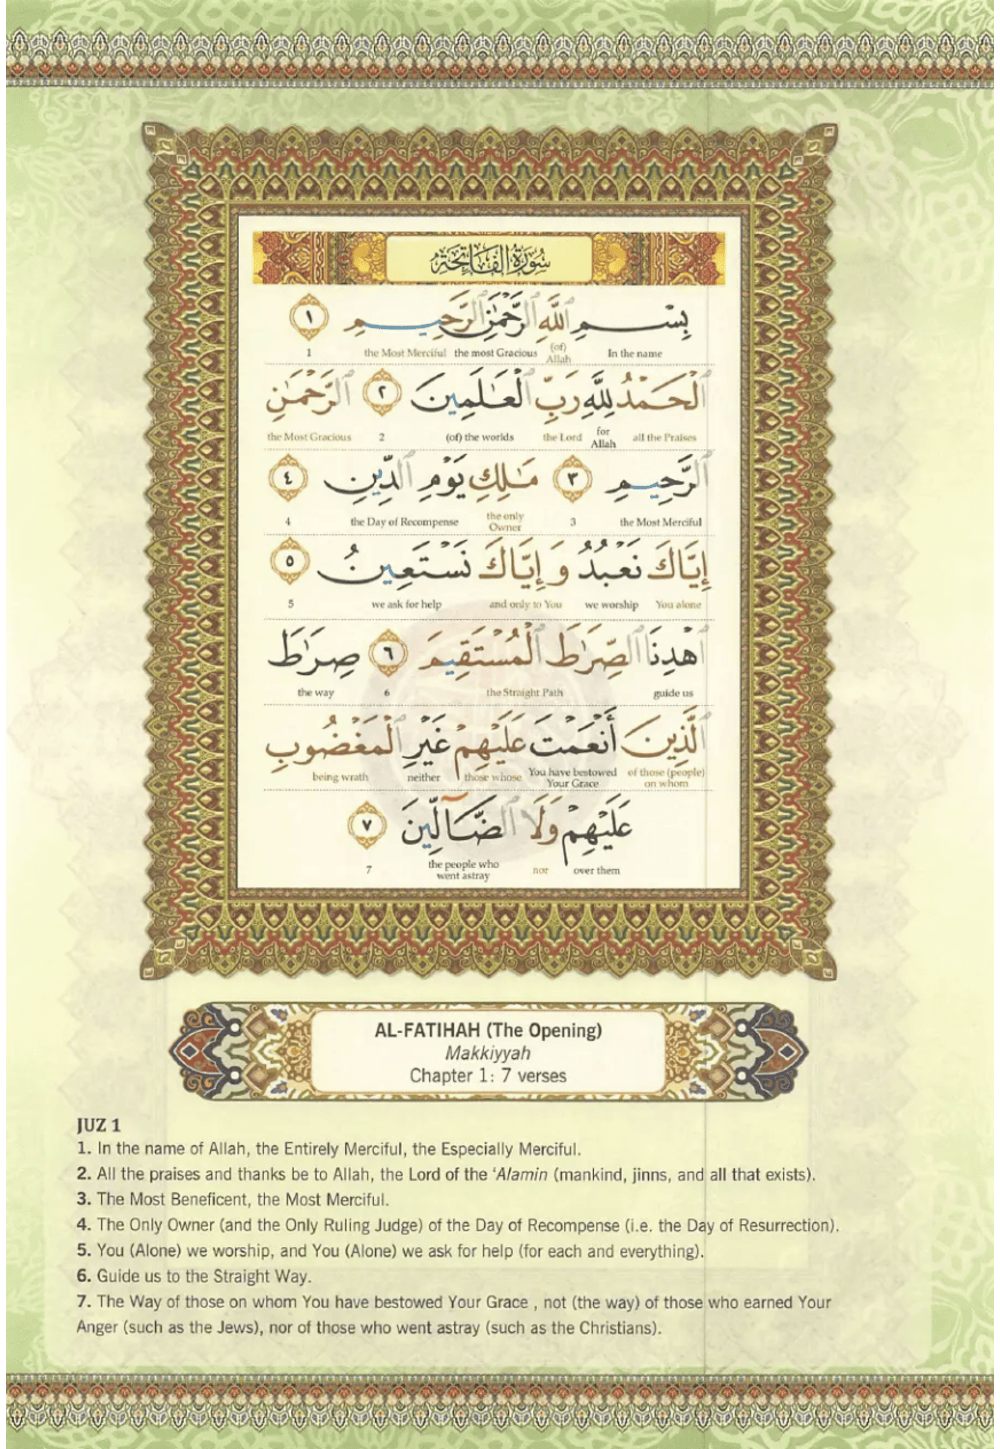 سُورَةُ الْفَاتِحَةِ
بِسْمِ ٱللَّهِ ٱلرَّحْمَٰنِ ٱلرَّحِيمِ ١
In the name (of) Allah the most Gracious the Most Merciful 1
ٱلْحَمْدُ لِلَّهِ رَبِّ ٱلْعَٰلَمِينَ ٢ ٱلرَّحْمَٰنِ
all the Praises for Allah the Lord (of) the worlds 2 the Most Gracious
ٱلرَّحِيمِ ٣ مَٰلِكِ يَوْمِ ٱلدِّينِ ٤
the Most Merciful 3 the only Owner the Day of Recompense 4
إِيَّاكَ نَعْبُدُ وَإِيَّاكَ نَسْتَعِينُ ٥
You alone we worship and only to You we ask for help 5
ٱهْدِنَا ٱلصِّرَٰطَ ٱلْمُسْتَقِيمَ ٦ صِرَٰطَ
guide us the Straight Path 6 the way
ٱلَّذِينَ أَنْعَمْتَ عَلَيْهِمْ غَيْرِ ٱلْمَغْضُوبِ
of those (people) on whom You have bestowed Your Grace those whose neither being wrath
عَلَيْهِمْ وَلَا ٱلضَّآلِّينَ ٧
over them nor the people who went astray 7
AL-FATIHAH (The Opening)
Makkiyyah
Chapter 1: 7 verses
JUZ 1
1. In the name of Allah, the Entirely Merciful, the Especially Merciful.
2. All the praises and thanks be to Allah, the Lord of the ‘Alamin (mankind, jinns, and all that exists).
3. The Most Beneficent, the Most Merciful.
4. The Only Owner (and the Only Ruling Judge) of the Day of Recompense (i.e. the Day of Resurrection).
5. You (Alone) we worship, and You (Alone) we ask for help (for each and everything).
6. Guide us to the Straight Way.
7. The Way of those on whom You have bestowed Your Grace , not (the way) of those who earned Your
Anger (such as the Jews), nor of those who went astray (such as the Christians).